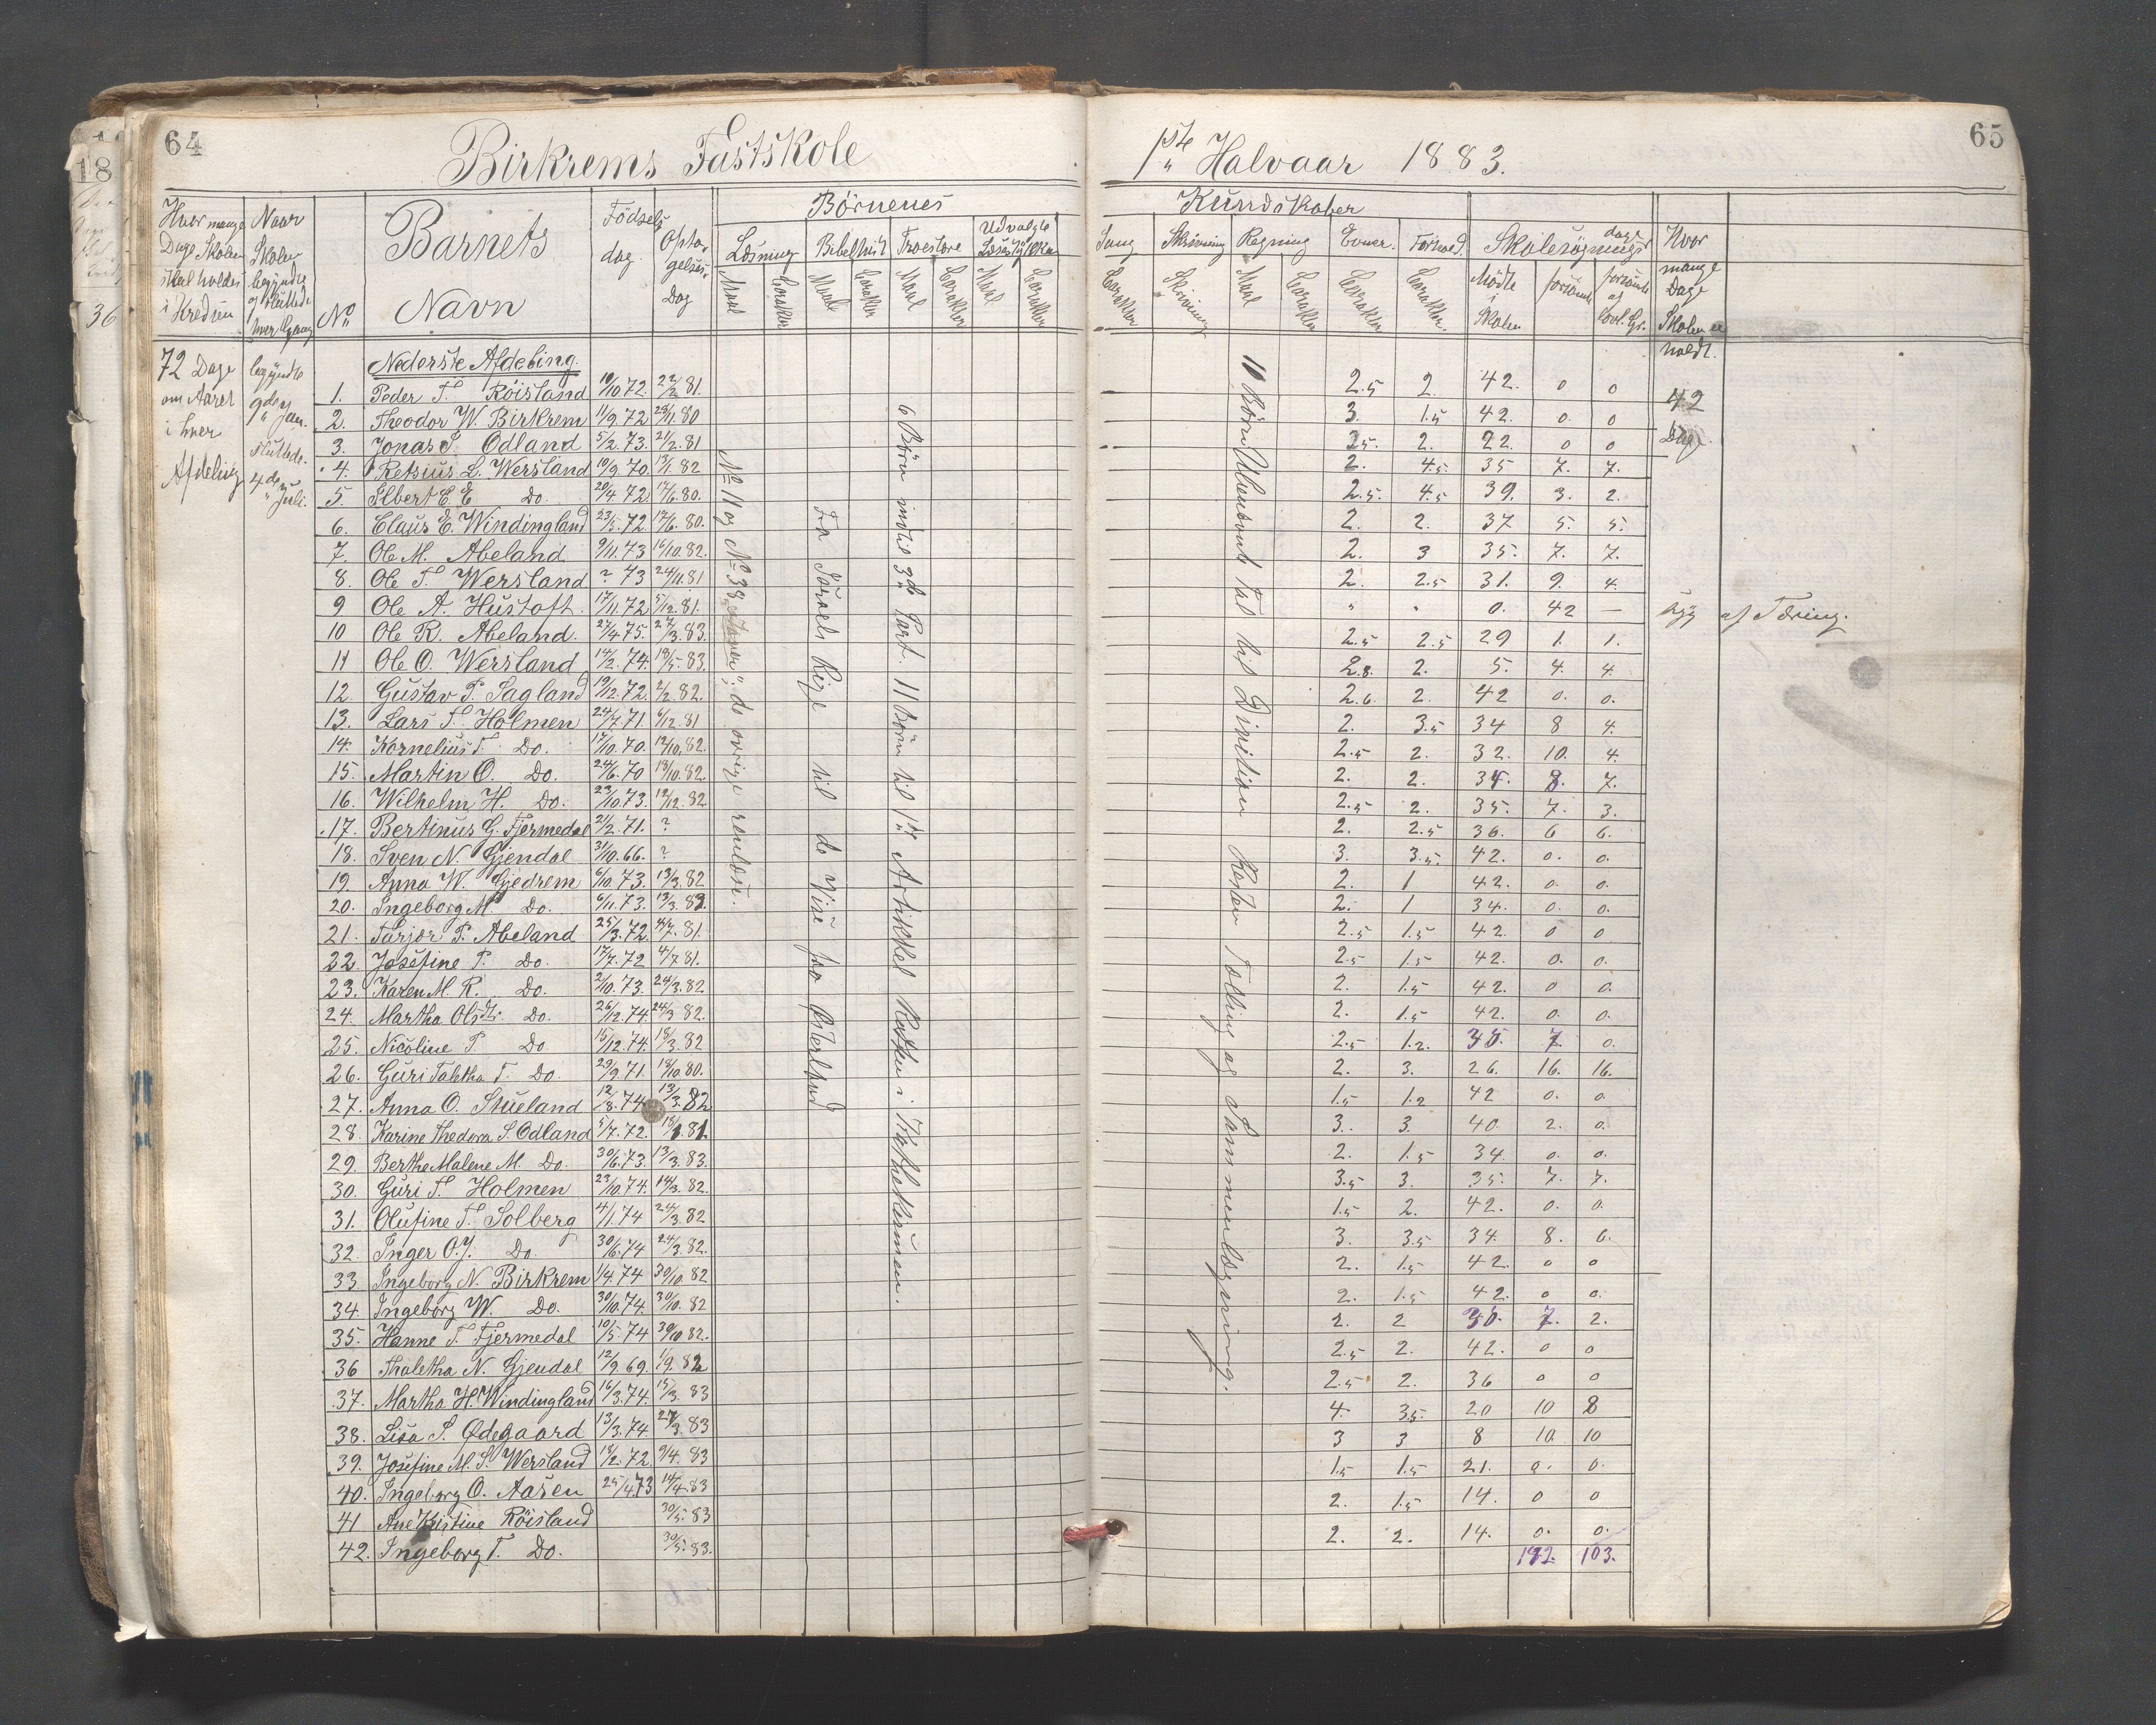 64
Birkrems Fastskole
1ste Halvaar 1883.
65
Hvor mange Dage Skolen skal holdes i Kredsen
Naar Skolen begyndte og sluttede hver Gang
No
Barnets Navn
Fødsels dag
Optagelses Dag
Børnenes
Kundskaber
Læsning
Bibelhist
Troeslære
Udvalgte Læsestykker
Sang
Skrivning
Regning
Evner.
Forhold.
Skolesøgningsdage
Hvor mange Dage Skolen er holdt.
Maal
Carakter
Maal
Carakter
Maal
Carakter
Maal
Carakter
Carakter
Skrivning
Maal
Carakter
Carakter
Carakter.
Mødte i Skolen
forsømte
forsømte af lovl. Gr.
72 Dage om Aaret i hver Afdeling
begyndte 9de Jan. sluttede 4de Juli.
Nederste Afdeling.
1. Peder T. Røisland 10/10 72. 22/2 81. 2.5 2. 42. 0 0
42 Dage
2. Theodor W. Birkrem 11/9 72 29/11 80 3. 1.5 42. 0. 0
3. Jonas S. Odland 5/2. 73. 21/2. 81 2.5. 2. 22. 0 0
4. Retsius L. Wersland 10/9. 70. 13/1. 82 2. 4.5. 35 7. 7.
5. Elbert E. E Do. 20/4. 72. 17/6. 80. 2.5. 4.5 39. 3. 2.
6. Claus E. Windingland 23/5. 72. 17/6. 80. 2. 2. 37 5. 5.
7. Ole M. Abeland 9/11. 73 16/10. 82. 2. 3 35. 7. 7.
8. Ole T. Wersland ? 73 24/11. 81 2. 2.5 31. 9. 4.
9 Ole A. Hustoft. 17/11. 72 5/12. 81. " " 0. 42 — syg af Tæring.
10 Ole R. Abeland. 27/4 75. 27/3. 83. 2.5 2.5 29 1. 1.
11 Ole O. Wersland 14/2. 74. 18/5. 83. 2.8. 2. 5. 4. 4
12. Gustav P. Sagland 19/12. 72. 2/2. 82. 2.6. 2. 42 0. 0.
13. Lars T. Holmen 24/7. 71. 6/12. 81 2. 3.5 34 8 4.
14. Kornelius T. Do. 17/10. 70. 19/10. 82. 2.5 2. 32. 10. 4.
15. Martin O. Do. 24/6. 70 18/10. 82. 2. 2. 34. 8. 7.
16. Wilhelm H. Do. 23/10. 73. 12/12. 82 2.5 2. 35. 7. 3.
17. Bertinus G. Fjermedal 21/2. 71. ? 2. 2.5 36. 6 6.
18. Sven N. Gjendal 31/10. 66. ? 3. 3.5. 42. 0. 0.
19. Anna W. Gjedrem 6/10. 73. 13/3. 82 2. 1 42. 0. 0.
20. Ingeborg M. Do. 6/11. 73. 13/3. 83. 2. 1 34. 0. 0.
21. Tarjer P. Abeland 25/3. 72. 4/7. 81. 2.5 1.5 42. 0 0
22. Josefine P. Do. 17/7. 72 4/7 81. 2.5 1.5 42. 0. 0.
23. Karen M. R. Do. 2/10. 73. 24/3. 82. 2. 1.5 42. 0 0.
24. Martha Olsdtr. Do. 26/12. 74. 24/3 82. 2. 1.5 42. 0. 0.
25. Nicoline P. Do 15/12. 74. 18/3. 82 2.5 1.2. 35. 7. 0.
26. Guri Taletha T. Do. 29/9. 71. 18/10 80. 2. 3. 26. 16. 16.
27. Anna O. Stueland 12/8. 74. 13/3. 82 1.5 1.2 42 0. 0
28. Karine Thedora S. Odland 5/7. 72. 81. 3. 3. 40 2. 0.
29. Berthe Malene M. Do. 30/6. 73. 13/3. 83. 2. 1.5 34. 0. 0.
30. Guri T. Holmen 23/10. 74. 14/3. 82. 3.5 3. 35. 7. 7.
31. Olufine T. Solberg 4/1. 74 24/3. 82 1.5 2. 42. 0. 0.
32. Inger O. J. Do. 30/6. 74 24/3. 82. 3. 3.5 34. 8. 6.
33. Ingeborg N. Birkrem 1/4. 74 30/10. 82 2. 1.5 42. 0 0
34. Ingeborg W. Do. 30/10. 74. 30/10. 82 2. 1.5 42. 0 0.
35. Hanne T. Fjermedal 10/5. 74 30/10 82. 2. 2 7. 2.
36 Thaletha N. Gjendal 12/9. 69. 1/9. 82 2.5 2. 42. 0 0
37. Martha H. Windingland 16/3. 74. 15/3. 83 2.5 2. 36 0 0
38. Lisa S. Ødegaard 13/3. 74. 27/3. 83 4. 3.5. 20 10 8
39. Josefine M. S. Wersland 18/2. 72. 9/4. 83 3 3 8 10. 10
40. Ingeborg O. Aasen 25/4. 73 14/4. 83 1.5 1.5 21. 0. 0.
41 Ane Kristine Röisland 30/5. 83 2. 1.5 14. 0 0
42. Ingeborg T. Do. 30/5. 83. 2. 2. 14. 0. 0.
103.
No 11 og No 38 de ovrige renlæse.
Fra Israels Rige til de Vise fra Østerland
6 Børn indtil 3de Part. 11 Børn til 1ste Artikkel Resten i Kathekismen.
10 Børn Ubenævnte Tal til Division Resten Tælling og Sammenlægning.
18
36